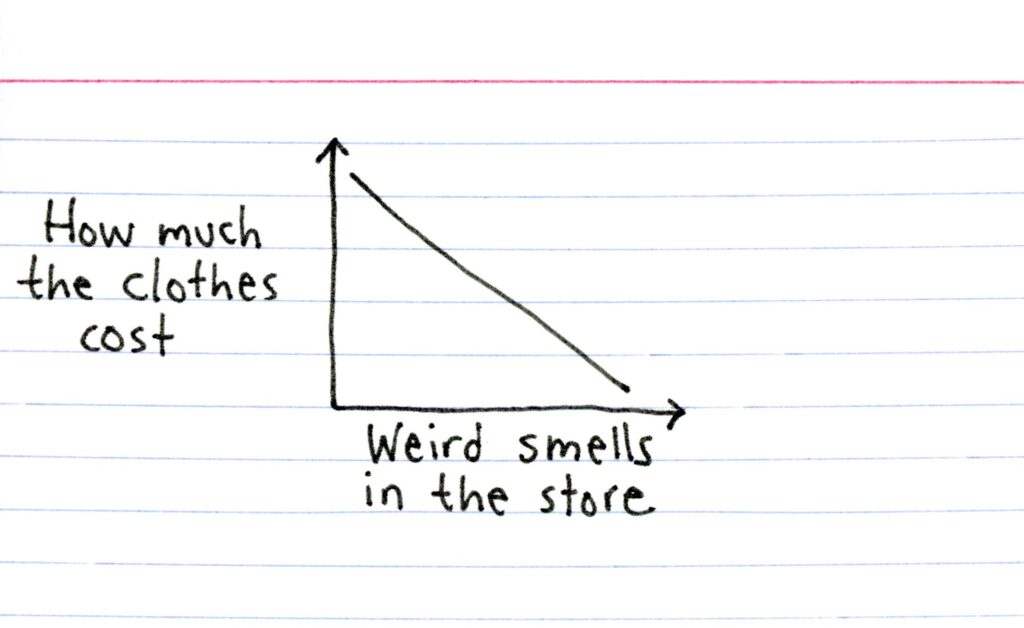 How much
the clothes
cost
Weird smells
in the store